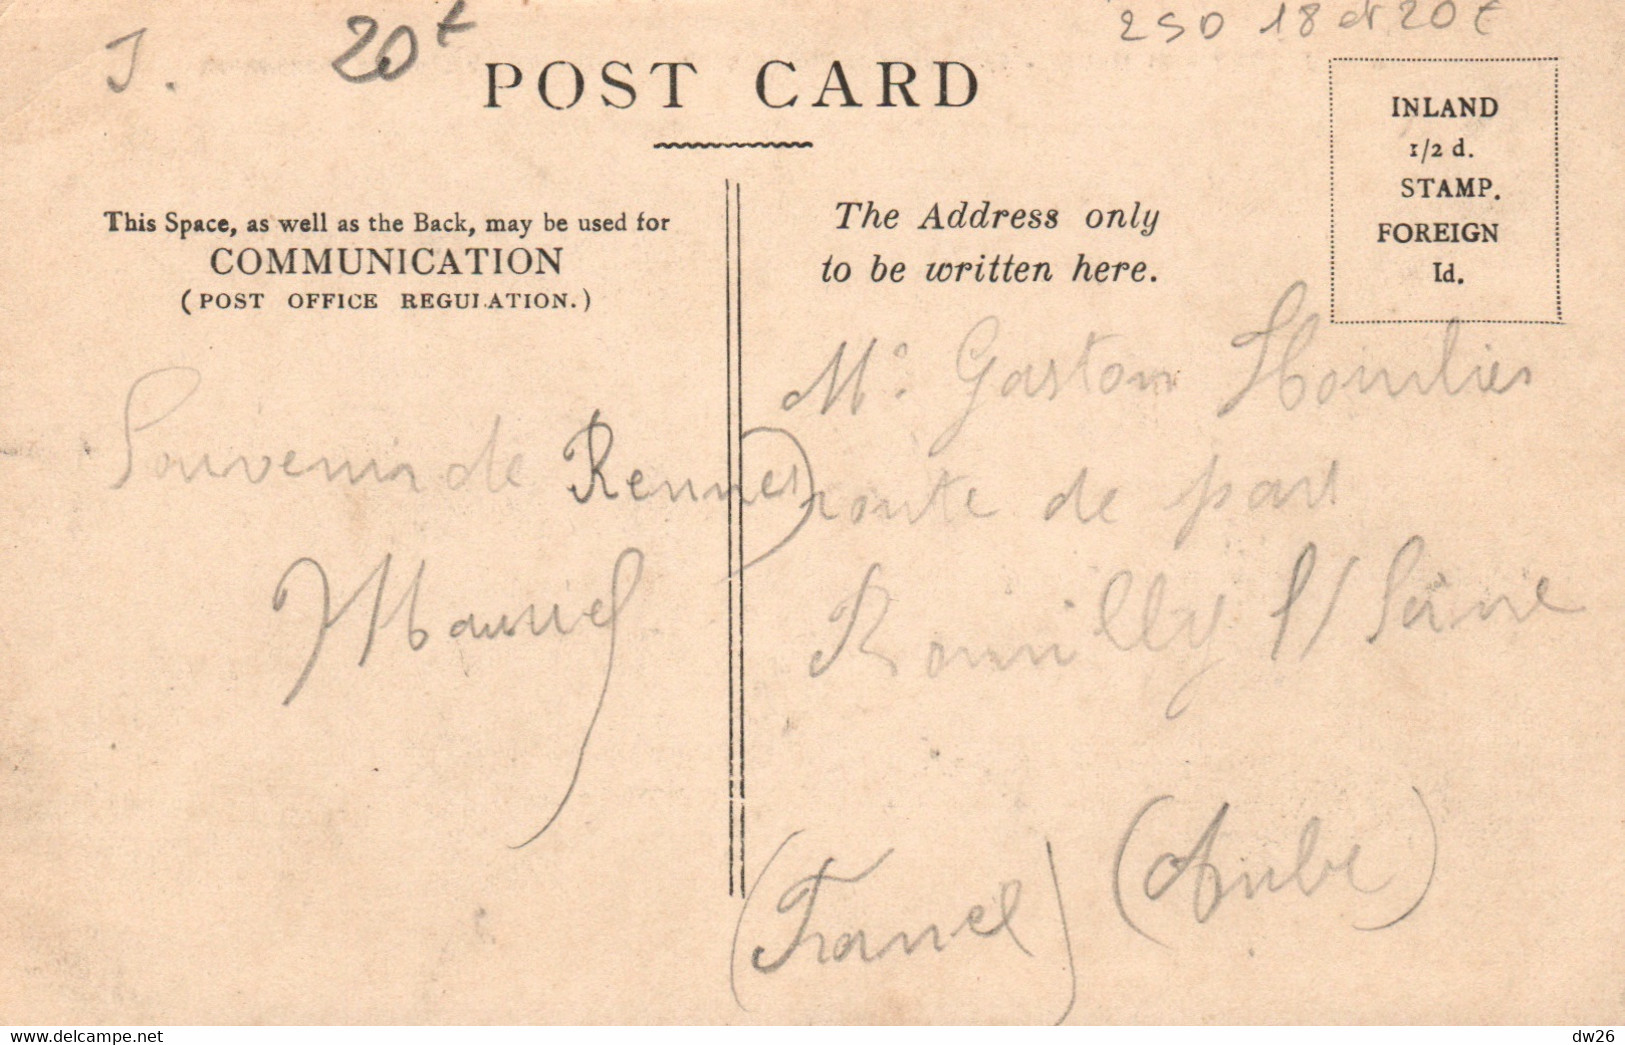 J. 20
18 et 20
POST CARD
INLAND
1/2 d.
STAMP.
FOREIGN
Id.
This Space, as well as the Back, may be used for
COMMUNICATION
(POST OFFICE REGULATION.)
The Address only
to be written here.
Souvenir de Rennes
Mr. Gaston
route de
Romilly s/ Seine
(France) (Aube)
https://www.delcampe.net
dw26